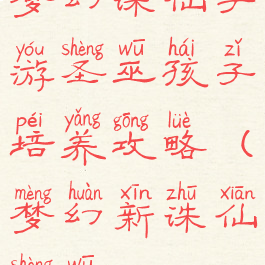 梦幻诛仙手
yóu shèng wū hái zǐ
游圣巫孩子
péi yǎng gōng lüè
培养攻略（
mèng huàn xīn zhū xiān
梦幻新诛仙
shèng wū